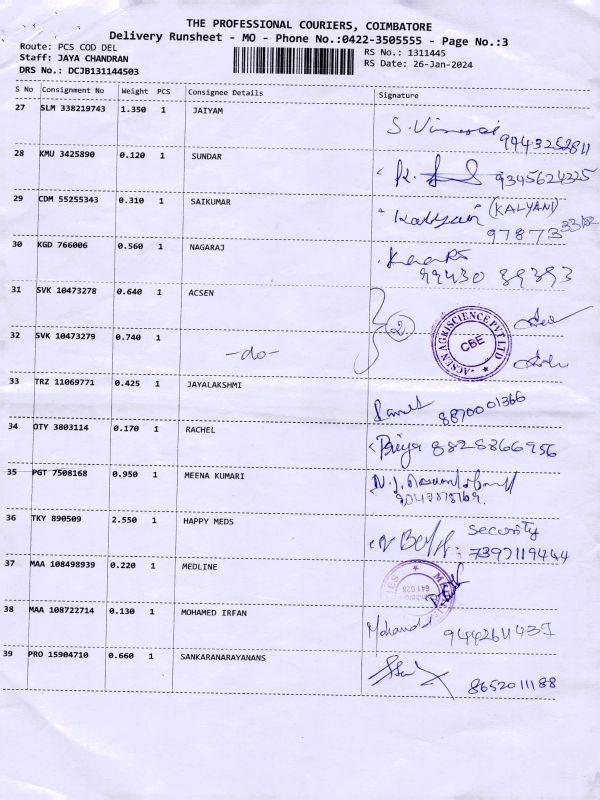 THE PROFESSIONAL COURIERS, COIMBATORE
Delivery Runsheet - MO - Phone No.:0422-3505555 - Page No.:3
Route: PCS COD DEL
Staff: JAYA CHANDRAN
DRS No.: DCJB131144503
RS No.: 1311445
RS Date: 26-Jan-2024
S No Consignment No Weight PCS Consignee Details Signature
27 SLM 338219743 1.350 1 JAIYAM
9943252811
28 KMU 3425890 0.120 1 SUNDAR
9345624325
29 CDM 55255343 0.310 1 SAIKUMAR
(KALYANI)
97873
30 KGD 766006 0.560 1 NAGARAJ
99430 89393
31 SVK 10473278 0.640 1 ACSEN
2
ACSEN AGRISCIENCE PVT LTD
CBE
32 SVK 10473279 0.740 1
-do-
33 TRZ 11069771 0.425 1 JAYALAKSHMI
8870001366
34 OTY 3803114 0.170 1 RACHEL
Priya 8828866956
35 PGT 7508168 0.950 1 MEENA KUMARI
36 TKY 890509 2.550 1 HAPPY MEDS
Security
7397119444
37 MAA 108498939 0.220 1 MEDLINE
641 028
38 MAA 108722714 0.130 1 MOHAMED IRFAN
39 PRO 15904710 0.660 1 SANKARANARAYANANS
8652011188